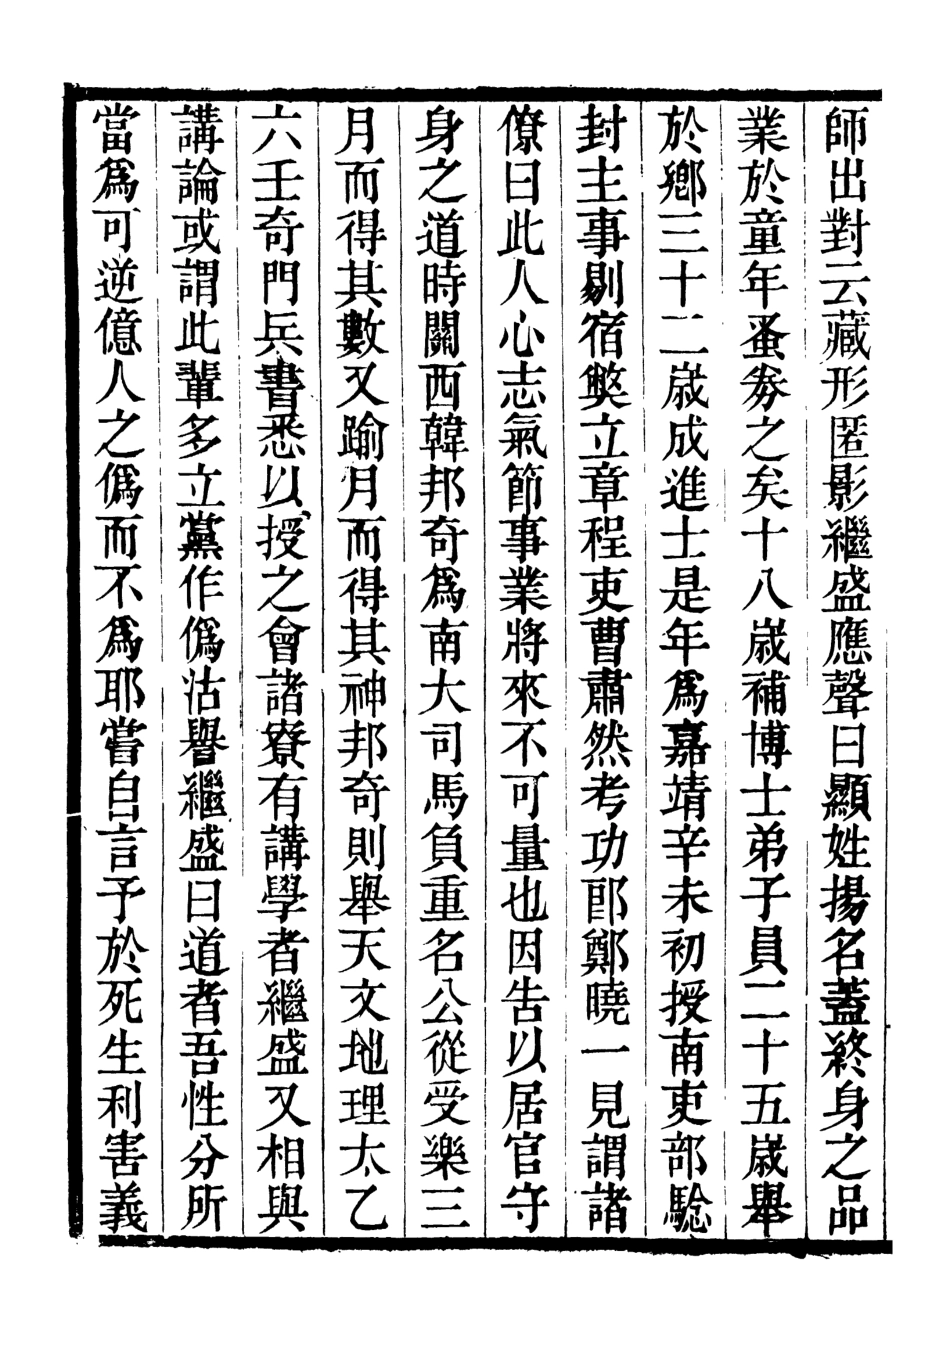 師出對云藏形匿影繼盛應聲曰顯姓揚名蓋終身之品
業於童年蚤券之矣十八歲補博士弟子員二十五歲舉
於鄉三十二歲成進士是年爲嘉靖辛未初授南吏部驗
封主事剔宿獘立章程吏曹肅然考功郎鄭曉一見謂諸
僚曰此人心志氣節事業將來不可量也因告以居官守
身之道時關西韓邦奇爲南大司馬負重名公從受樂三
月而得其數又踰月而得其神邦奇則舉天文地理太乙
六壬奇門兵書悉以授之會諸寮有講學者繼盛又相與
講論或謂此輩多立黨作僞沽譽繼盛曰道者吾性分所
當爲可逆億人之僞而不爲耶嘗自言予於死生利害義